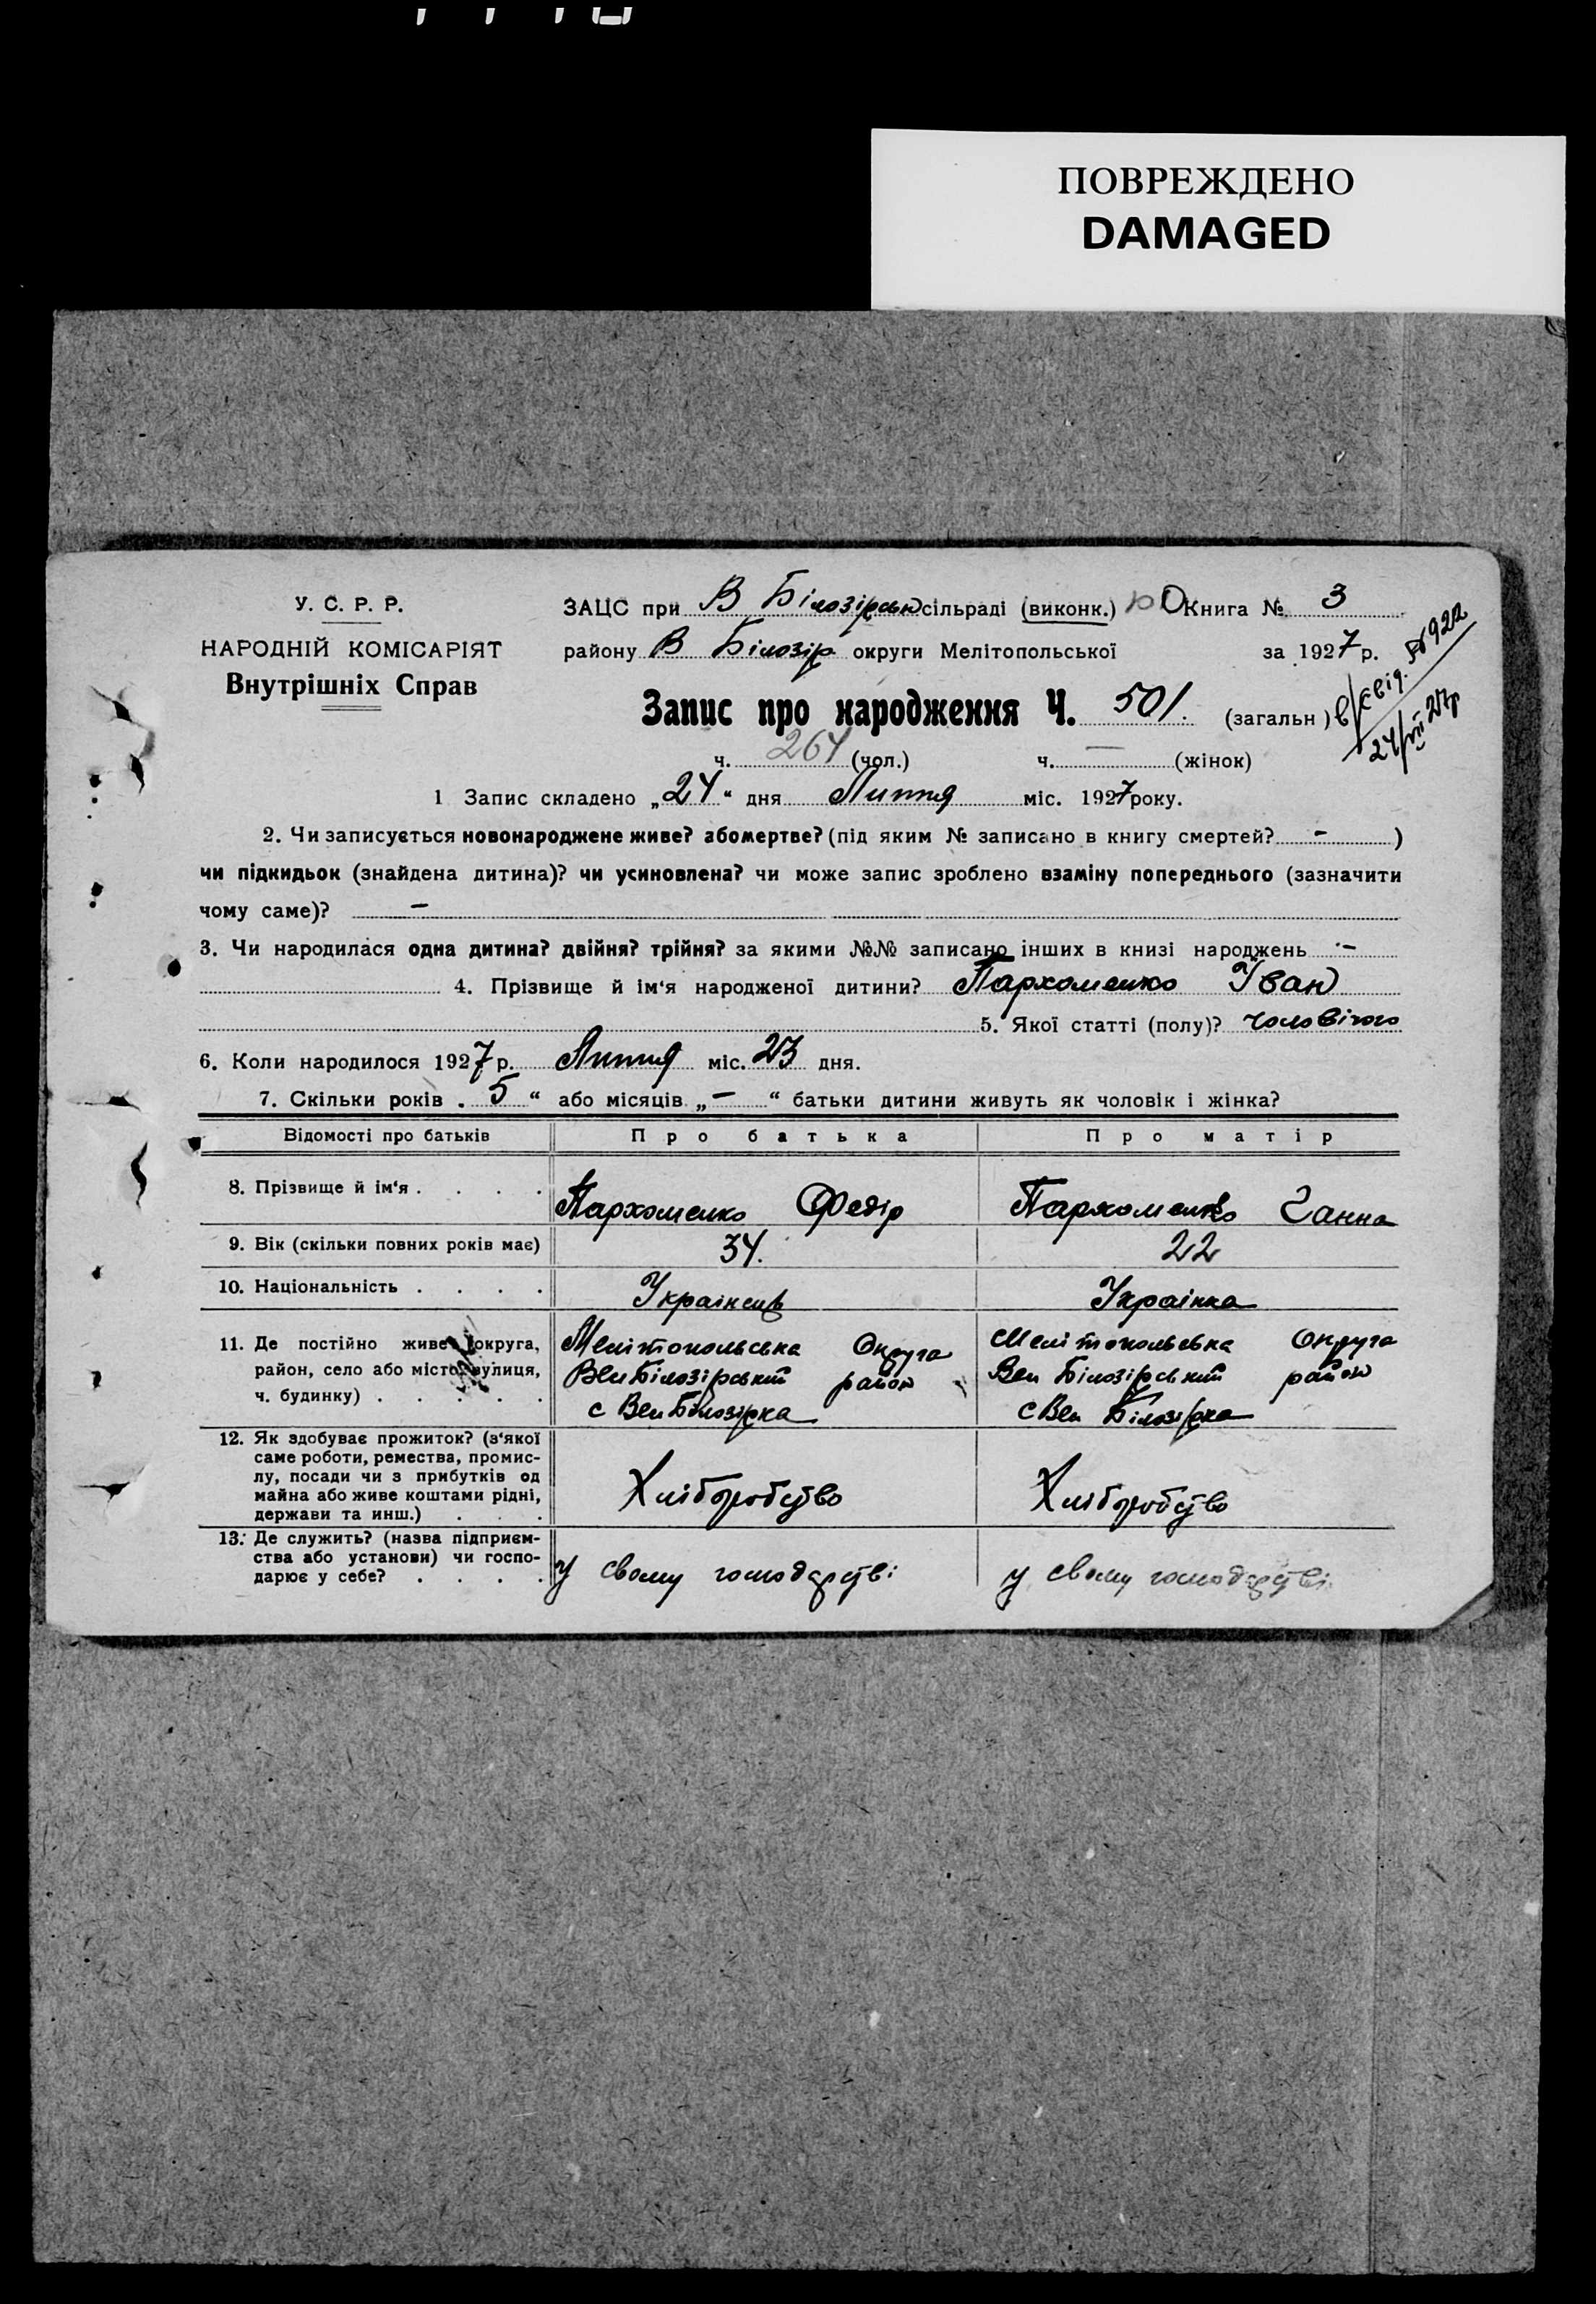 ПОВРЕЖДЕНО
DAMAGED
У. С. Р. Р.
НАРОДНІЙ КОМІСАРІЯТ
Внутрішніх Справ
ЗАЦС при В Білозірськ сільраді (виконк.) Книга № 3
району В Білозір округи Мелітопольської за 1927 р.
№ 922
24/VII 27р
Запис про народження Ч. 501. (загальн)
ч. 264 (чол.) ч. — (жінок)
1 Запис складено „24“ дня Липня міс. 1927 року.
2. Чи записується новонароджене живе? або мертве? (під яким № записано в книгу смертей? - )
чи підкидьок (знайдена дитина)? чи усиновлена? чи може запис зроблено взаміну попереднього (зазначити
чому саме)? -
3. Чи народилася одна дитина? двійня? трійня? за якими №№ записано інших в книзі народжень -
4. Прізвище й ім‘я народженої дитини? Пархоменко Іван
5. Якої статті (полу)? чоловічого
6. Коли народилося 1927 р. Липня міс. 23 дня.
7. Скільки років „5“ або місяців „-“ батьки дитини живуть як чоловік і жінка?
Відомості про батьків Про батька Про матір
8. Прізвище й ім‘я . . . . Пархоменко Федір Пархоменко Ганна
9. Вік (скільки повних років має) 34. 22
10. Національність . . . . Українець Українка
11. Де постійно живе (округа, Мелітопольська Округа Мелітопольська Округа
район, село або місто, вулиця, Вел Білозірський район Вел Білозірський район
ч. будинку) . . . . . с Вел Білозірка с Вел Білозірка
12. Як здобуває прожиток? (з‘якої
саме роботи, ремества, промис-
лу, посади чи з прибутків од Хліборобство Хліборобство
майна або живе коштами рідні,
держави та инш.) . . .
13. Де служить? (назва підприєм-
ства або установи) чи госпо-
дарює у себе? . . . . у свому господарстві у свому господарстві